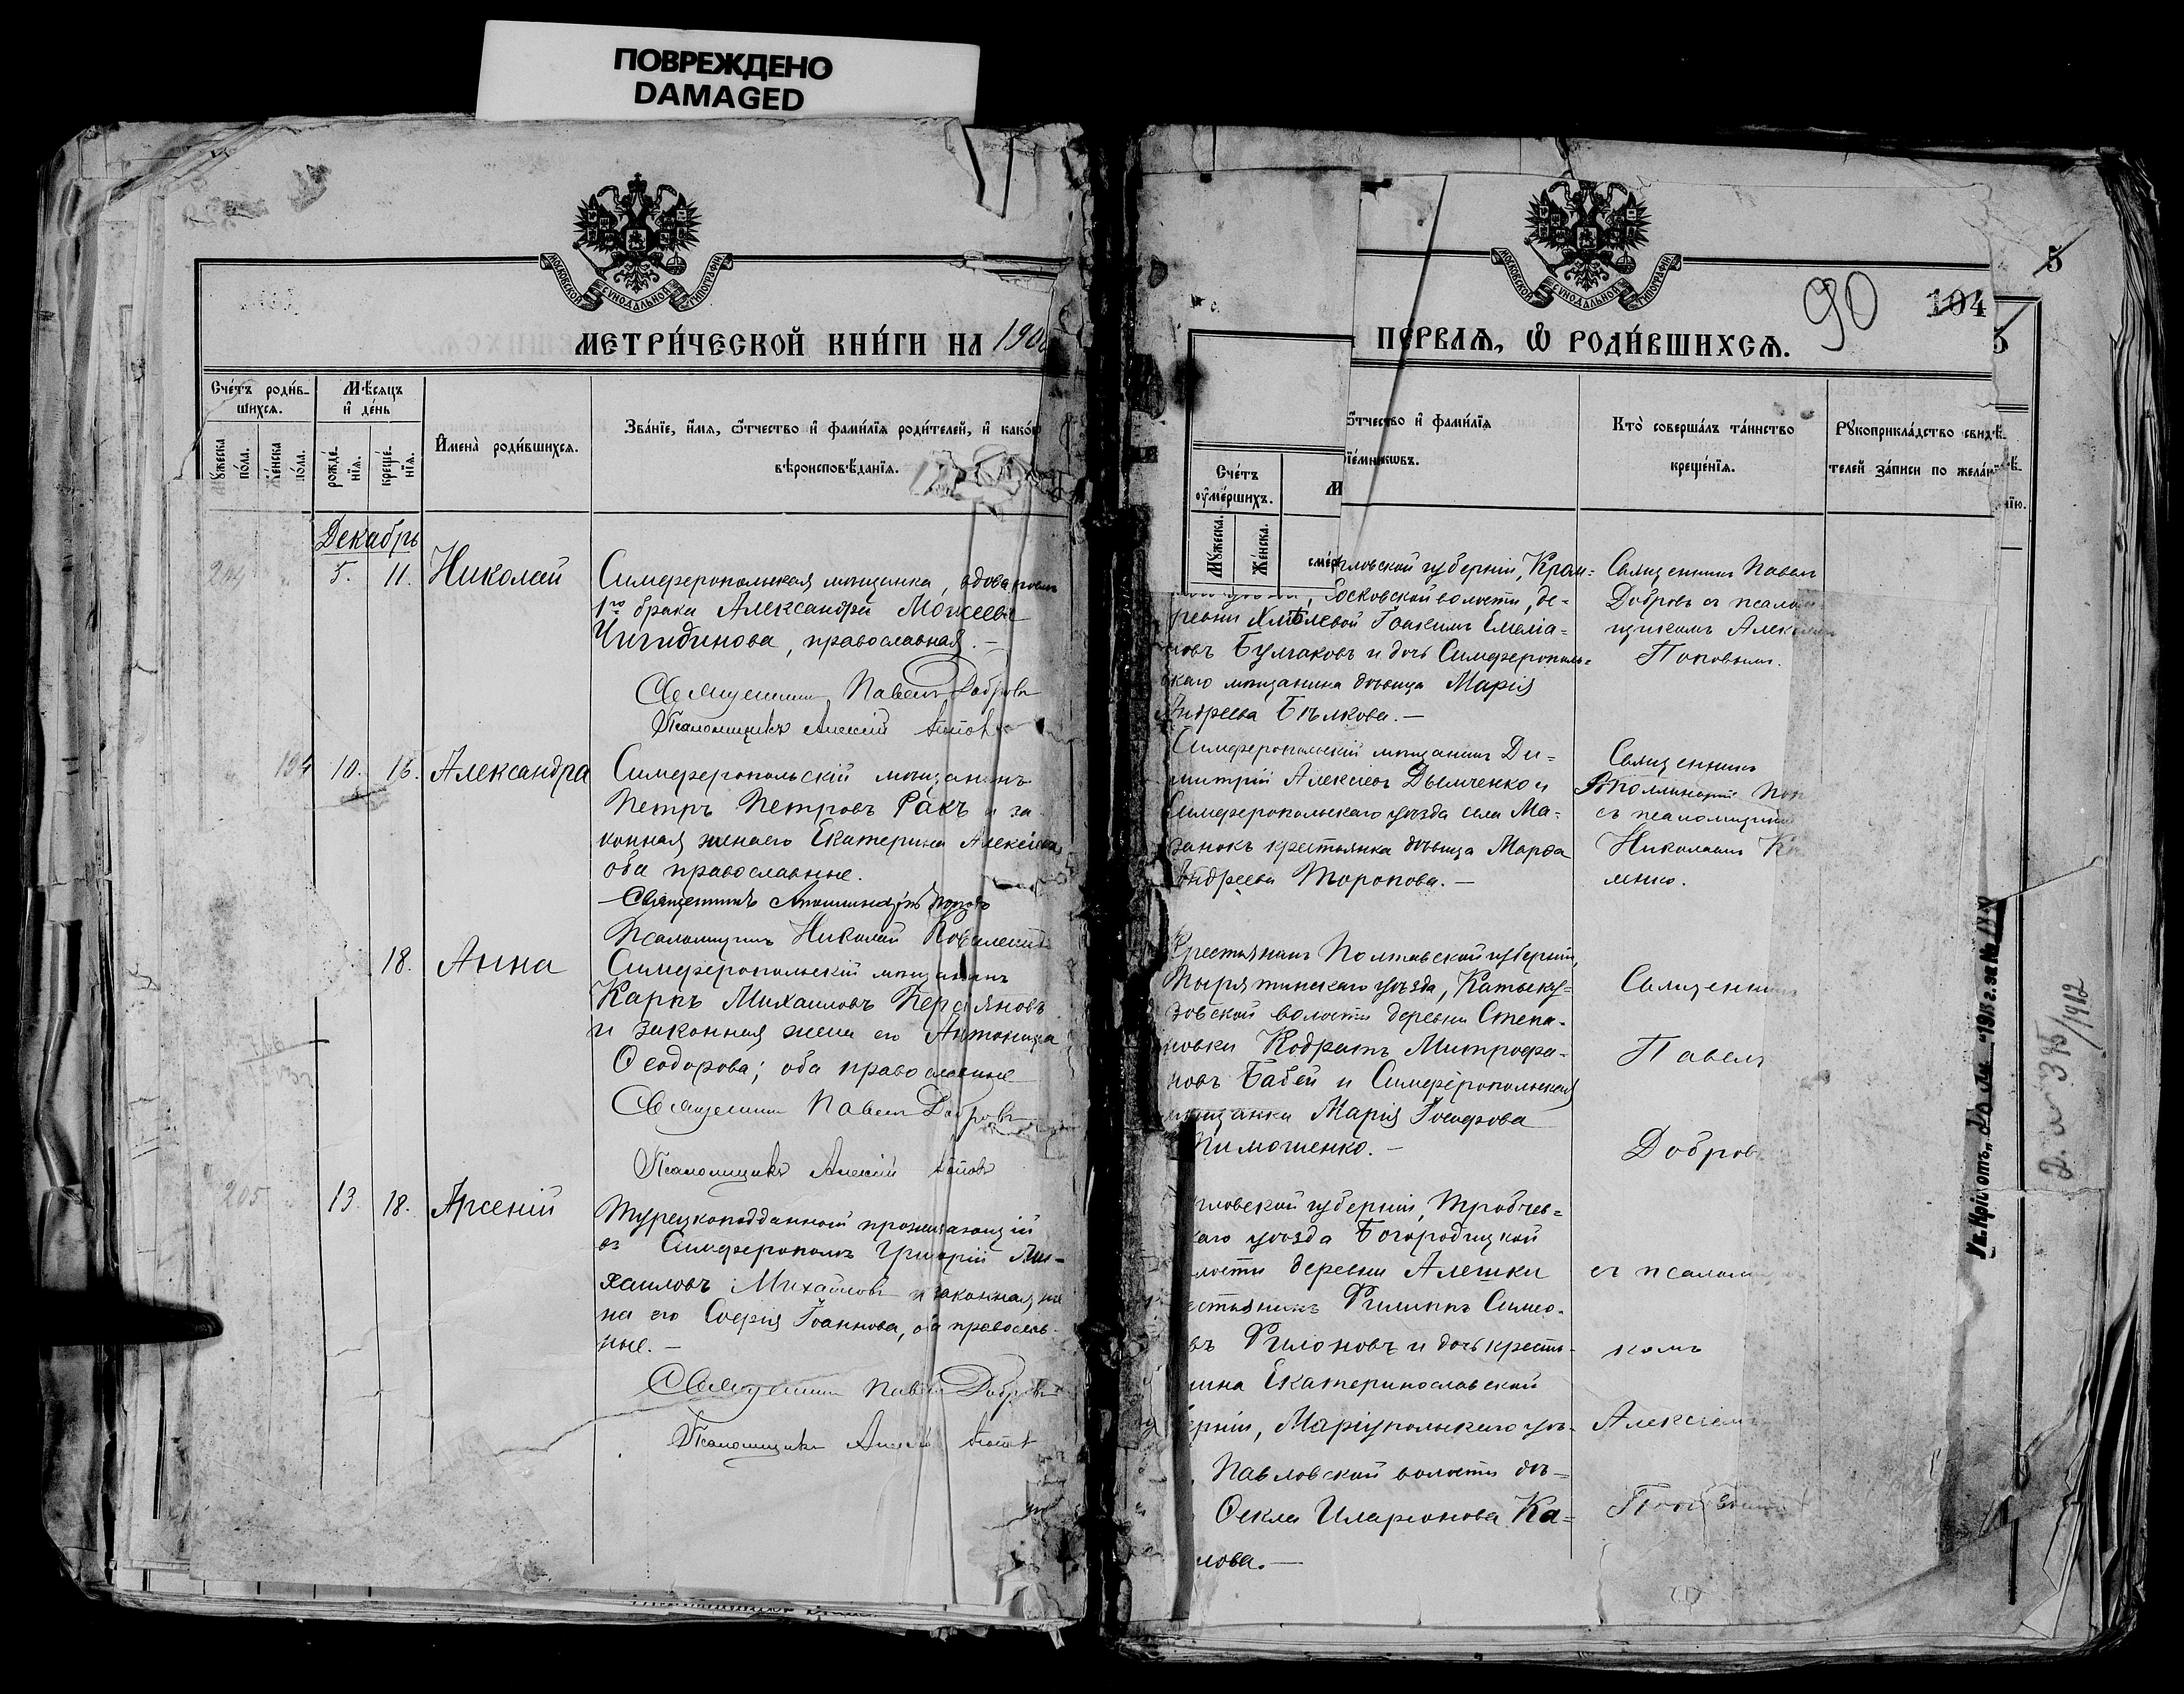 ПОВРЕЖДЕНО
DAMAGED
МОСКОВСКОЙ СУНОДАЛЬНОЙ ТИПОГРАФІИ
МЕТРИ́ЧЕСКОЙ КНИ́ГИ НА 190
Сче́тъ роди́в-
шихсѧ.
Мѣ́сѧцъ
и҆ де́нь
Мꙋ́жеска
по́ла.
Же́нска
по́ла.
рожде́-
нїѧ.
креще́-
нїѧ.
И҆мена̀ роди́вшихсѧ.
Зва́нїе, и҆́мѧ, ѻ҆́тчество и҆ фами́лїѧ роди́телей, и҆ како́гѡ
вѣроисповѣ́данїѧ.
Декабрь
204 5. 11. Николай
Симферопольская мѣщанка, вдова
1го брака Александра Моисеева
Чигидинова, православная. —
Священникъ Павелъ Добровъ
Псаломщикъ Алексій Поповъ
194 10. 15. Александра
Симферопольскій мѣщанинъ
Петръ Петровъ Ракъ и за-
конная жена его Екатерина Алексѣева,
оба православные.
Священникъ Аполлинарій Поповъ
Псаломщикъ Николай
18. Анна
Симферопольскій мѣщанинъ
Карпъ Михаиловъ
и законная жена его Антонина
Ѳеодорова; оба православные
Священникъ Павелъ Добровъ
Псаломщикъ Алексій Поповъ
205 13. 18. Арсеній
Турецкоподданный проживающій
въ Симферополѣ Григорій Ми-
хаиловъ Михайловъ и законная же-
на его Софія Іоаннова, оба православ-
ные. —
Священникъ Павелъ Добровъ
Псаломщикъ Алексій Поповъ
МОСКОВСКОЙ СУНОДАЛЬНОЙ ТИПОГРАФІИ
ПЕ́РВАѦ, Ѡ҆ РОДИ́ВШИХСѦ.
90
104
5
5
ѻ҆́тчество и҆ фами́лїѧ
їе́мникѡвъ.
Кто̀ соверша́лъ та́инство
креще́нїѧ.
Рꙋкоприкла́дство свидѣ́-
телей за́писи по жела́нїю.
Сче́тъ
ѹ҆ме́ршихъ.
М
Мꙋ́жеска.
Же́нска.
сме́р
ловской губерніи, Кром-
Сосковской волости, де-
ревни Хмѣлевой Іоакимъ Емелiа-
новъ Булгаковъ и дочь Симферополь-
скаго мѣщанина дѣвица Марія
Андреева Бѣлкова. —
Священникъ Павелъ
Добровъ съ псалом
щикомъ
Поповымъ.
Симферопольскій мѣщанинъ Ди-
митрій Алексѣевъ Дымченко и
Симферопольскаго уѣзда села Ма-
занокъ крестьянка дѣвица Марѳа
Андреева Торопова. —
Священникъ
Аполлинарій Поп
съ псаломщик
Николаемъ
ленко.
Крестьянинъ Полтавской губерніи,
Пирятинскаго уѣзда,
зовской волости деревни Степа-
новки Кодратъ Митрофа-
новъ Бабей и Симферопольская
мѣщанка Марія Іосифова
Пимошенко. —
Священникъ
Павелъ
Добровъ
ловской губерніи, Трубчев-
каго уѣзда Богородицкой
лости деревни Алешки
естьянинъ Филиппъ Симео-
въ Филоновъ и дочь кресть-
нина Екатеринославской
ерніи, Маріупольскаго уѣз-
Павловской волости дѣ-
Ѳекла Иларіонова Ка-
лова. —
съ псалом
комъ
Алексіемъ